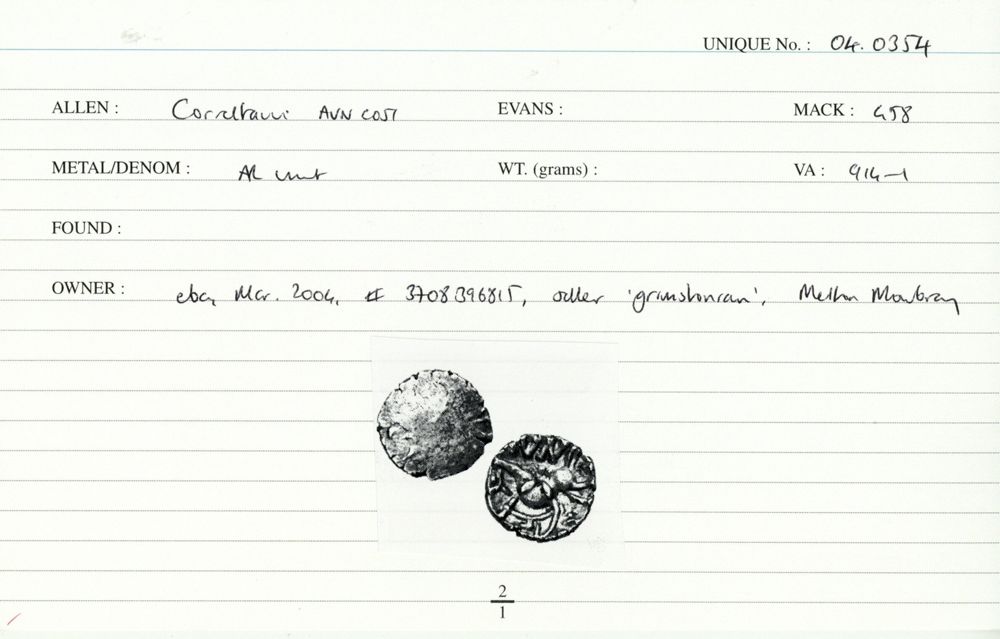 UNIQUE No. : 04.0354
ALLEN : Correltauvi AVN COST EVANS : MACK : 458
METAL/DENOM : AR unit WT. (grams) : VA : 914-1
FOUND :
OWNER : ebay Mar. 2004, # 3708396815, seller 'grimstonran', Melton Mowbray
2
1